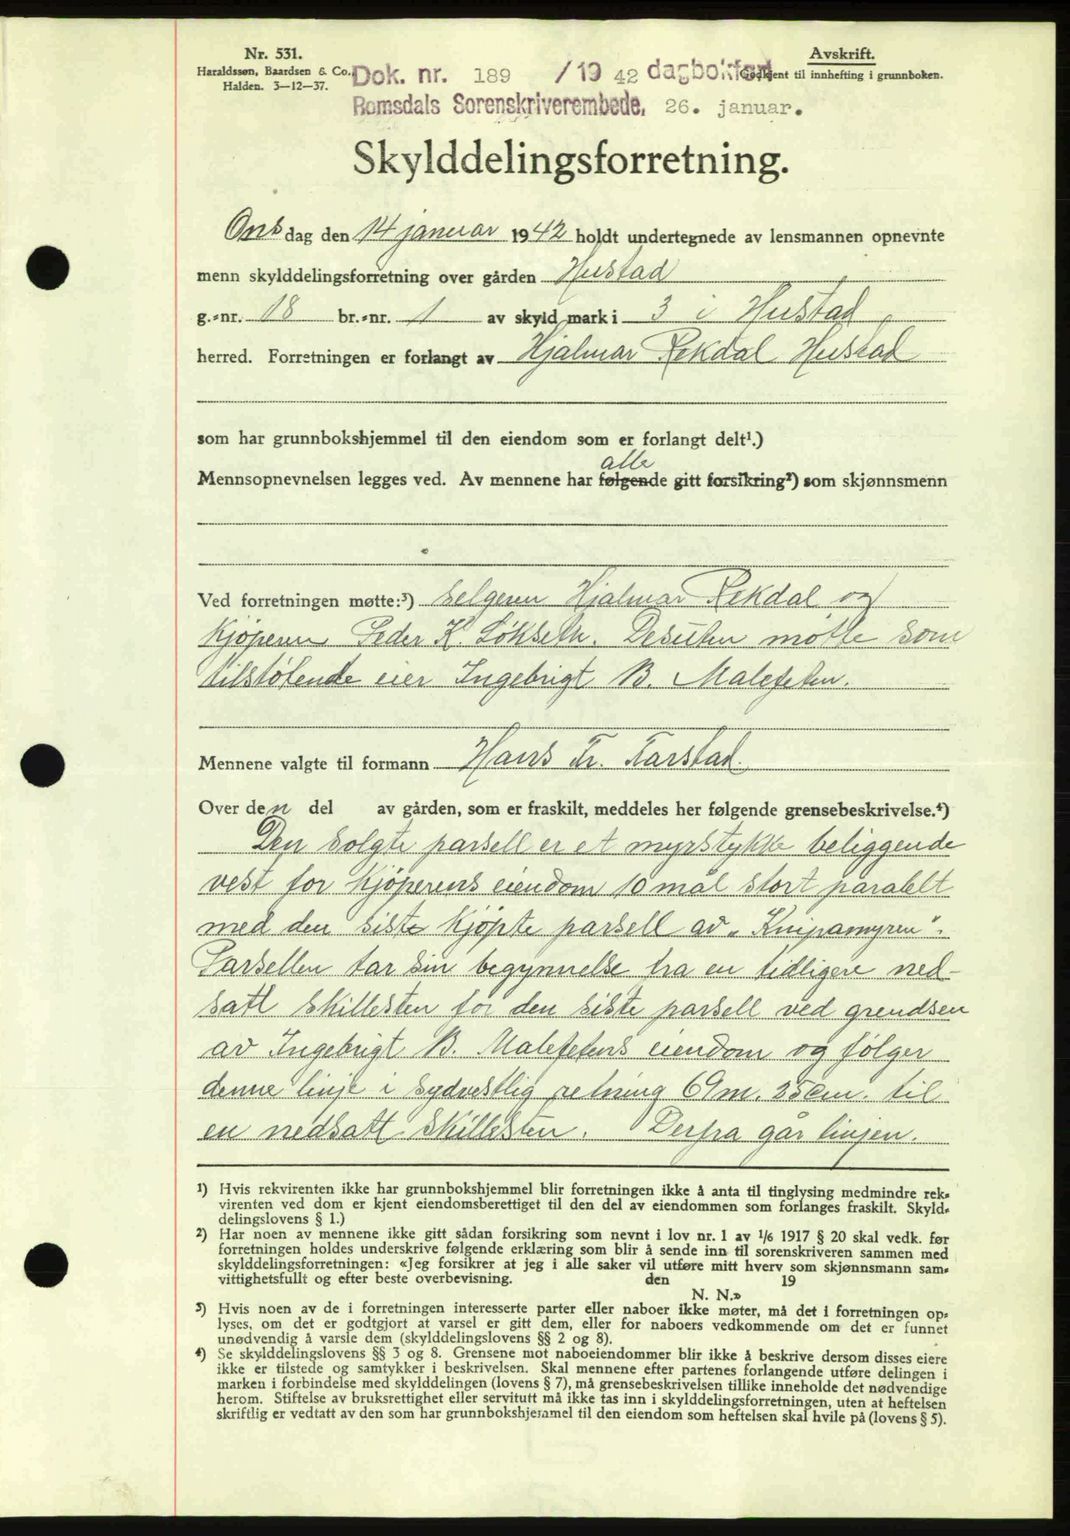 Nr. 531.
Haraldssøn, Baardsen & Co.
Halden. 3—12—37.
Dok. nr. 189 /19 42 dagbokført
Romsdals Sorenskriverembede, 26. januar.
Avskrift.
Godkjent til innhefting i grunnboken.
Skylddelingsforretning.
Onsdag den 14 januar 1942 holdt undertegnede av lensmannen opnevnte
menn skylddelingsforretning over gården Hustad
g.-nr. 18 br.-nr. 1 av skyld mark i 3 i Hustad
herred. Forretningen er forlangt av Hjalmar Rekdal Hustad
som har grunnbokshjemmel til den eiendom som er forlangt delt¹.)
alle
Mennsopnevnelsen legges ved. Av mennene har følgende gitt forsikring²) som skjønnsmenn
Ved forretningen møtte:³) Selgeren Hjalmar Rekdal og
Kjøperen Peder K Løkseth. Desuten møtte som
tilstøtende eier Ingebrigt B. Malefeten.
Mennene valgte til formann Hans Fr. Farstad.
Over den del av gården, som er fraskilt, meddeles her følgende grensebeskrivelse.⁴)
Den solgte parsell er et myrstykke beliggende
vest for kjøperens eiendom 10 mål stort paralelt
med den siste kjøpte parsell av „Knipamyren".
Parsellen tar sin begynnelse fra en tidligere ned-
satt skillesten for den siste parsell ved grendsen
av Ingebrigt B. Malefetens eiendom og følger
denne linje i sydvestlig retning 69 m. 25 cm. til
en nedsatt skillesten. Derfra går linjen.
¹) Hvis rekvirenten ikke har grunnbokshjemmel blir forretningen ikke å anta til tinglysing medmindre rek-
virenten ved dom er kjent eiendomsberettiget til den del av eiendommen som forlanges fraskilt. Skyld-
delingslovens § 1.)
²) Har noen av mennene ikke gitt sådan forsikring som nevnt i lov nr. 1 av 1/6 1917 § 20 skal vedk. før
forretningen holdes underskrive følgende erklæring som blir å sende inn til sorenskriveren sammen med
skylddelingsforretningen: «Jeg forsikrer at jeg i alle saker vil utføre mitt hverv som skjønnsmann sam-
vittighetsfullt og efter beste overbevisning. den 19
N. N.»
³) Hvis noen av de i forretningen interesserte parter eller naboer ikke møter, må det i forretningen op-
lyses, om det er godtgjort at varsel er gitt dem, eller for naboers vedkommende om det er funnet
unødvendig å varsle dem (skylddelingslovens §§ 2 og 8).
⁴) Se skylddelingslovens §§ 3 og 8. Grensene mot naboeiendommer blir ikke å beskrive dersom disses eiere
ikke er tilstede og samtykker i beskrivelsen. Skal mennene efter partenes forlangende utføre delingen i
marken i forbindelse med skylddelingen (lovens § 7), må grensebeskrivelsen tillike inneholde det nødvendige
herom. Stiftelse av bruksrettighet eller servitutt må ikke tas inn i skylddelingsforretningen, uten at heftelsen
skriftlig er vedtatt av den som har grunnbokshjemmel til den eiendom som heftelsen skal hvile på (lovens § 5).